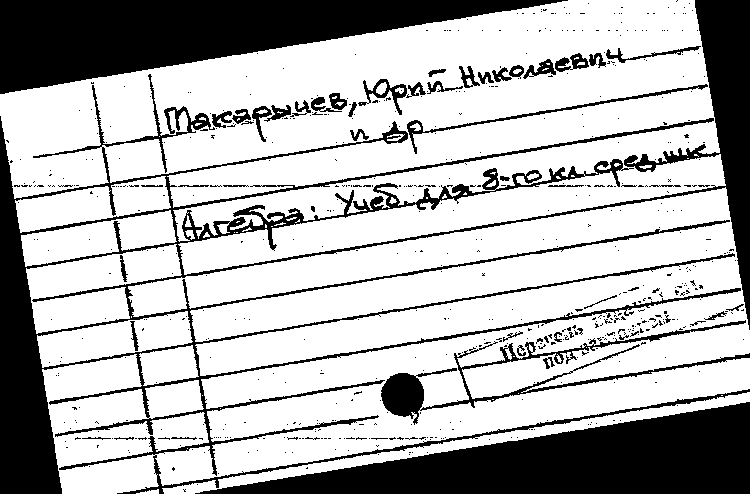 Макарычев, Юрий Николаевич
и др
Алгебра: Учеб. для 8-го кл. сред. шк.
Перечень изданий см.
под заглавием